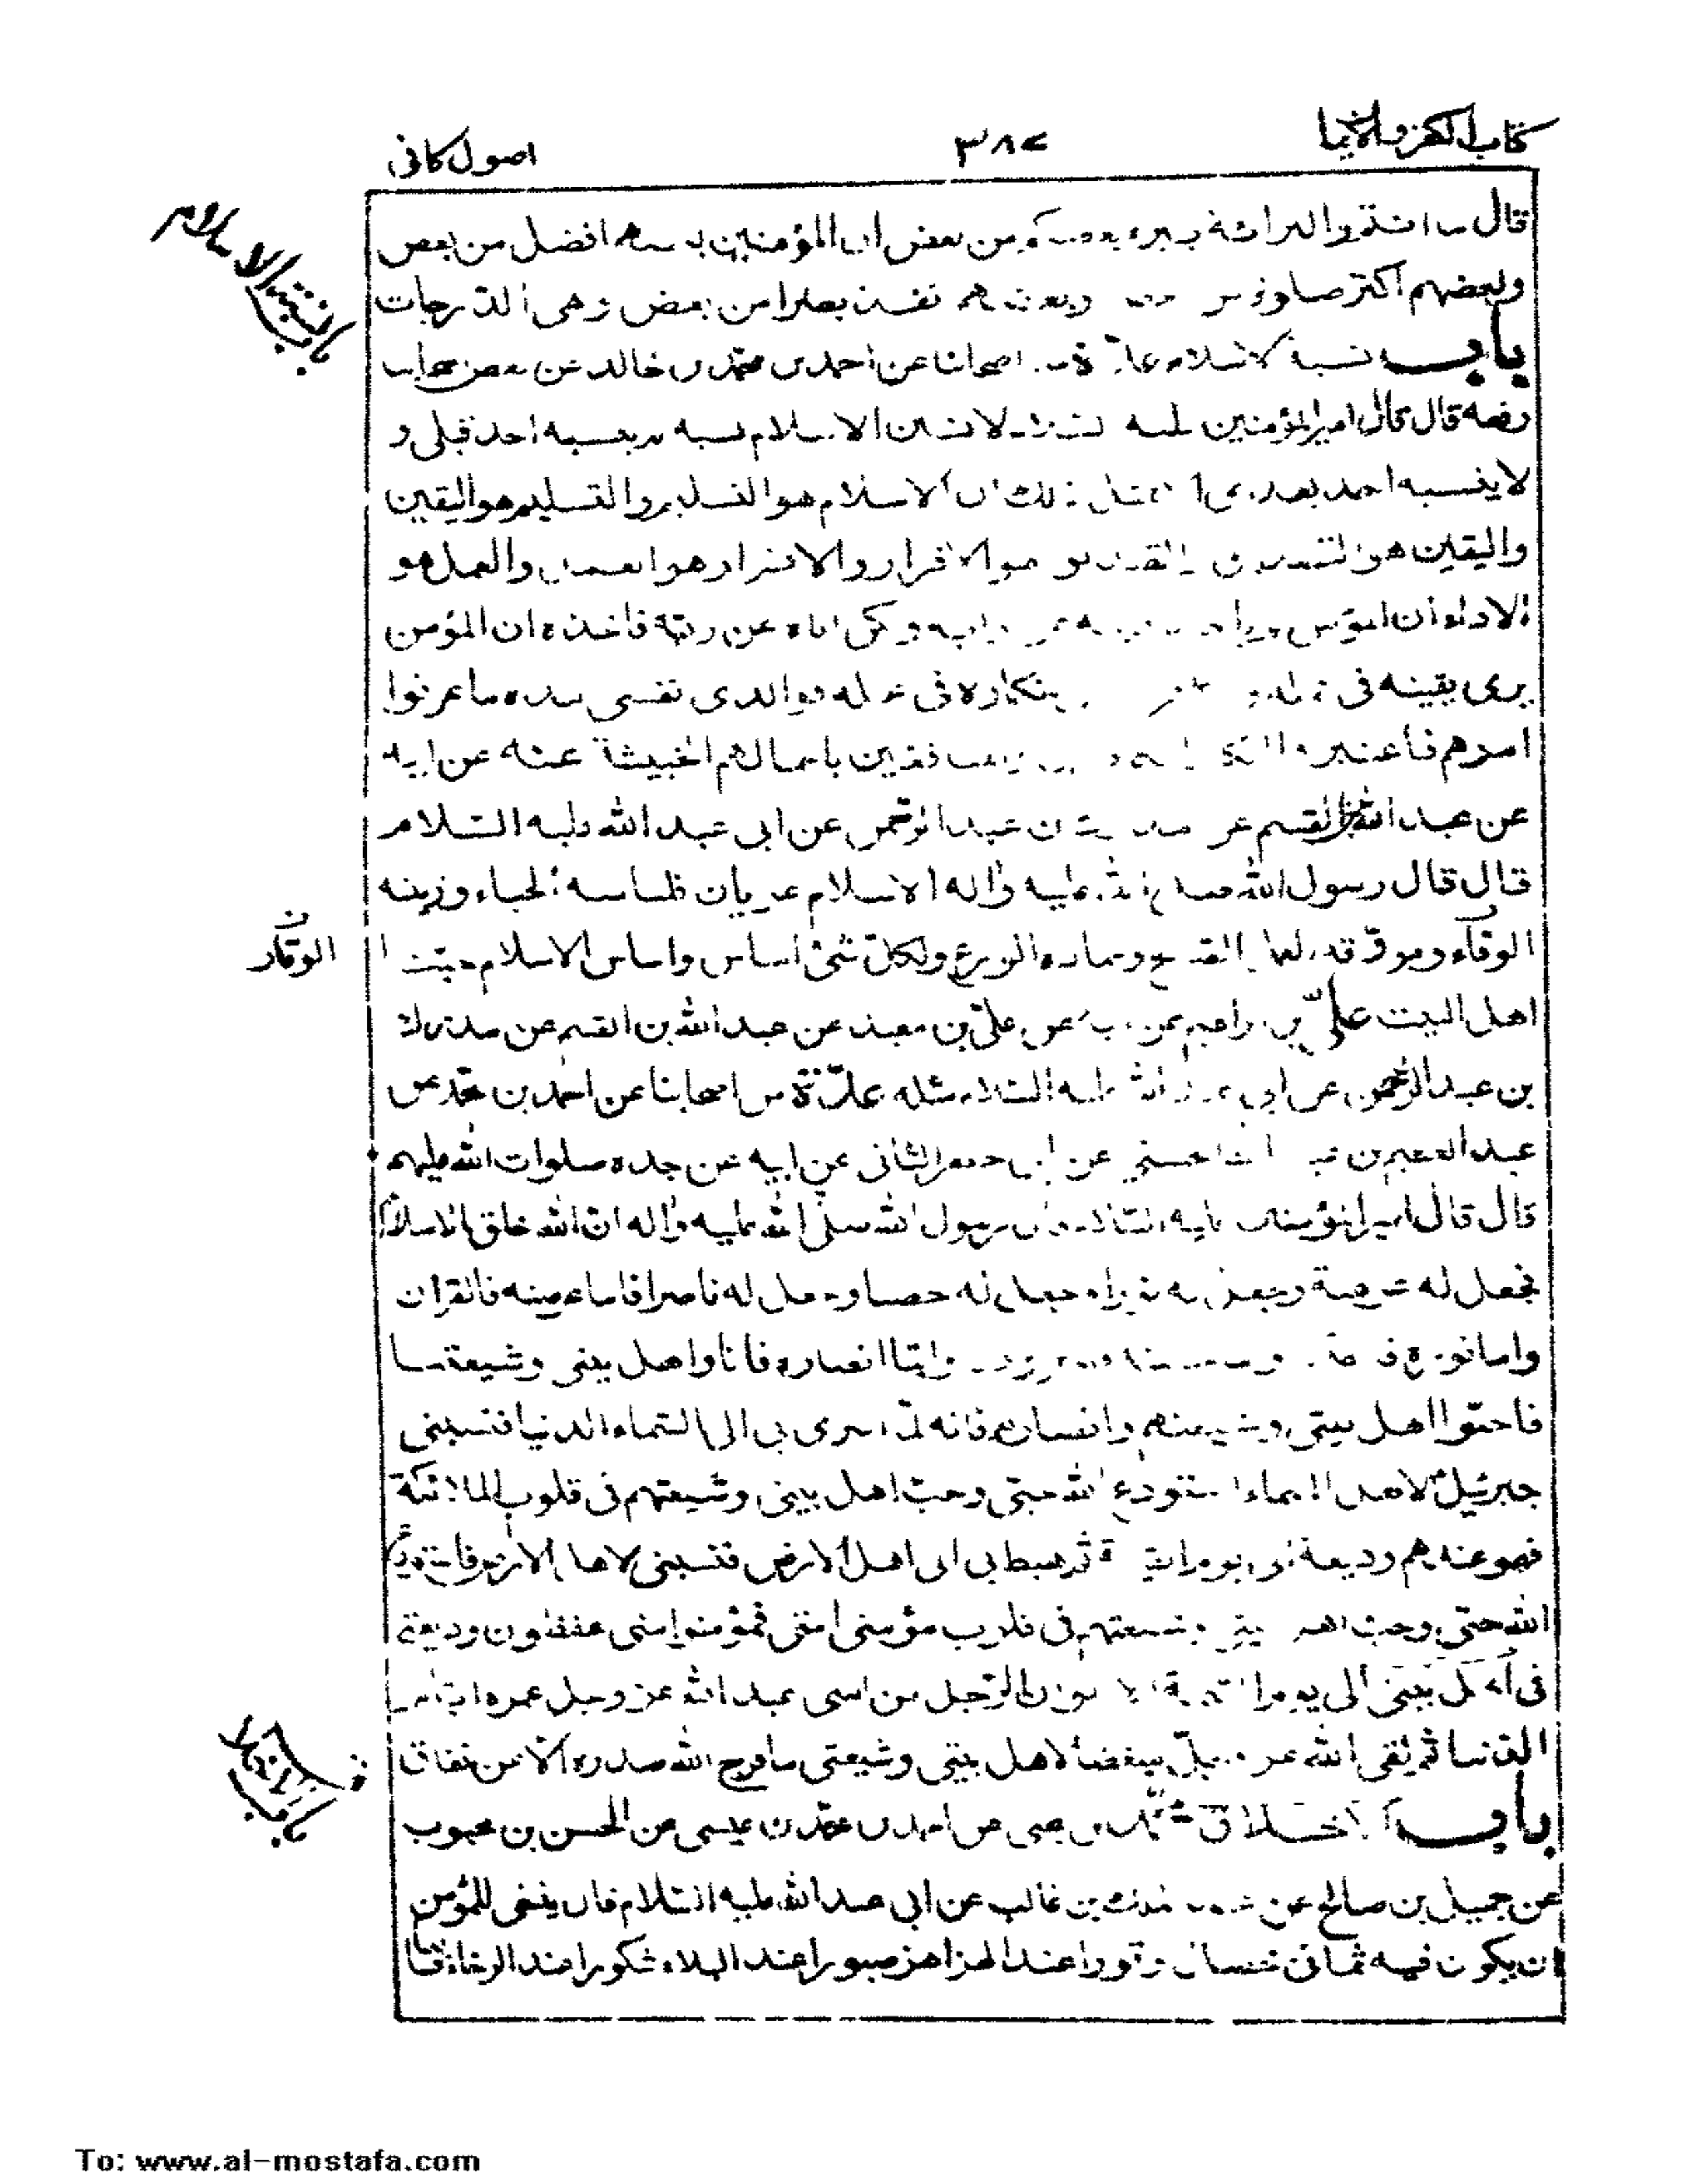 كتاب الكفر والايمان
٣٨٤
اصول كافى
قال ما انتم والبرائة يبرء بعضكم من بعض ان المؤمنين بعضهم افضل من بعض
وبعضهم اكثر صلوة من بعض وبعضهم نفذ بصرا من بعض وهى الدرجات
باب نسبة الاسلام عدة من اصحابنا عن احمد بن محمد بن خالد عن بعض اصحابه
رفعه قال قال امير المؤمنين عليه السلام لانسبن الاسلام نسبة لم ينسبه احد قبلى و
لا ينسبه احد بعدى الا بمثل ذلك ان الاسلام هو التسليم والتسليم هو اليقين
واليقين هو التصديق والتصديق هو الاقرار والاقرار هو العمل والعمل هو
الاداء ان المؤمن لم ياخذ دينه عن رايه ولكن اتاه عن ربه فاخذه ان المؤمن
يرى يقينه فى عمله انكاره فى عمله فو الذى نفسى بيده ما عرفوا
امرهم فاعتبروا انكار والمنافقين باعمالهم الخبيثة عنه عن ابيه
عن عبد الله بن القسم عن مدرك بن عبد الرحمن عن ابى عبد الله عليه السلام
قال قال رسول الله صلى الله عليه واله الاسلام عريان فلباسه الحياء وزينته
الوقاء ومروته العمل الصالح وعماده الورع ولكل شئ اساس واساس الاسلام حبنا
اهل البيت على بن ابراهيم عن ابيه عن على بن معبد عن عبد الله بن القسم عن مدرك
بن عبد الرحمن عن ابى عبد الله عليه السلام مثله عدة من اصحابنا عن احمد بن محمد عن
عبد العظيم بن عبد الله الحسنى عن ابى جعفر الثانى عن ابيه عن جده صلوات الله عليهم
قال قال امير المؤمنين عليه السلام قال رسول الله صلى الله عليه واله ان الله خلق الاسلام
فجعل له عرصة وجعل له نورا وجعل له حصنا وجعل له ناصرا فاما عرصته فالقران
واما نوره فالحكمة واما حصنه فالمعروف واما انصاره فانا واهل بيتى وشيعتنا
فاحبوا اهل بيتى وشيعتهم وانصارهم فانه لما اسرى بى الى السماء الدنيا فنسبنى
جبرئيل لاهل السماء استودع الله حبى وحب اهل بيتى وشيعتهم فى قلوب الملائكة
فهو عندهم وديعة الى يوم القيمة ثم هبط بى الى اهل الارض فنسبنى لاهل الارض فاستودع
الله حبى وحب اهل بيتى وشيعتهم فى قلوب مؤمنى امتى فمؤمنوا امتى يحفظون وديعتى
فى اهل بيتى الى يوم القيمة الا فلو ان الرجل من امتى عبد الله عز وجل عمره ايام
الدنيا ثم لقى الله عز وجل مبغضا لاهل بيتى وشيعتى ما فرج الله صدره الا عن نفاق
باب الاخلاق محمد بن يحيى عن احمد بن محمد بن عيسى عن الحسن بن محبوب
عن جميل بن صالح عن عبد الملك بن غالب عن ابى عبد الله عليه السلام قال ينبغى للمؤمن
ان يكون فيه ثمانى خصال وقورا عند الهزاهز صبورا عند البلاء شكورا عند الرخاء قانعا
باب نسبة الاسلام
الوقار ن
To: www.al-mostafa.com